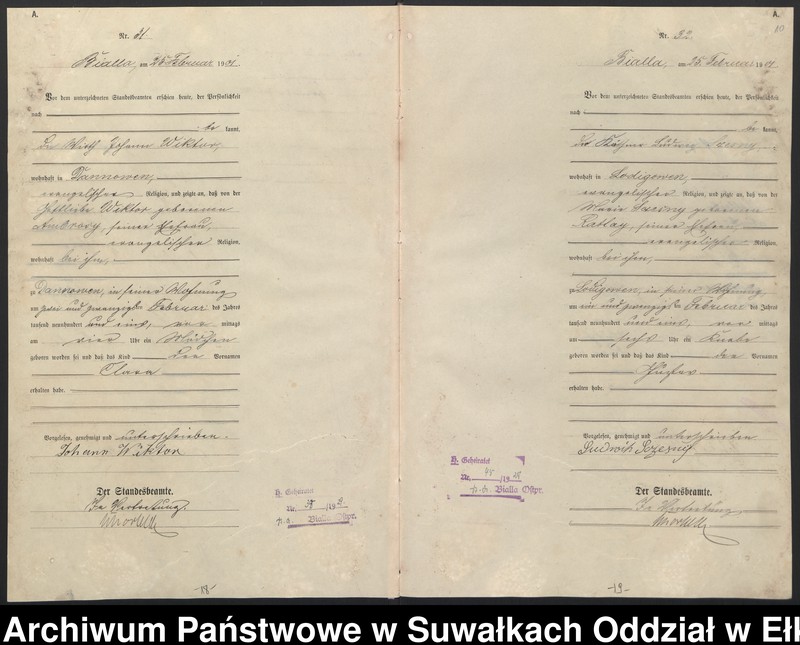 A.
Nr. 31
Bialla, am 25 Februar 1901
Vor dem unterzeichneten Standesbeamten erschien heute, der Persönlichkeit
nach
be kannt,
der Wirth Johann Wiktor,
wohnhaft in Dannowen,
evangelischer Religion, und zeigte an, daß von der
Wiktor geborenen
seiner Ehefrau,
evangelischer Religion,
wohnhaft bei ihm,
zu Dannowen, in seiner Wohnung
am zwei und zwanzigsten Februar des Jahres
tausend neunhundert und eins, vor mittags
um vier Uhr ein Mädchen
geboren worden sei und daß das Kind den Vornamen
Clara
erhalten habe.
Vorgelesen, genehmigt und unterschrieben.
Johann Wiktor
Der Standesbeamte.
In Vertretung.
H. Geheiratet
Nr. /19
Bialla Ostpr.
-18-
A.
Nr. 32.
Bialla, am 25. Februar 1901
Vor dem unterzeichneten Standesbeamten erschien heute, der Persönlichkeit
nach
be kannt,
der Käthner Ludwig
wohnhaft in Lodigowen,
evangelischer Religion, und zeigte an, daß von der
Marie geborenen
seiner Ehefrau,
evangelischer Religion,
wohnhaft bei ihm,
zu Lodigowen, in seiner Wohnung
am ein und zwanzigsten Februar des Jahres
tausend neunhundert und eins, vor mittags
um sechs Uhr ein Knabe
geboren worden sei und daß das Kind den Vornamen
Gustav
erhalten habe.
Vorgelesen, genehmigt und unterschrieben
Ludwik Sczesny
Der Standesbeamte.
In Vertretung.
H. Geheiratet
Nr. /19
Bialla Ostpr.
-19-
Archiwum Państwowe w Suwałkach Oddział w Eł